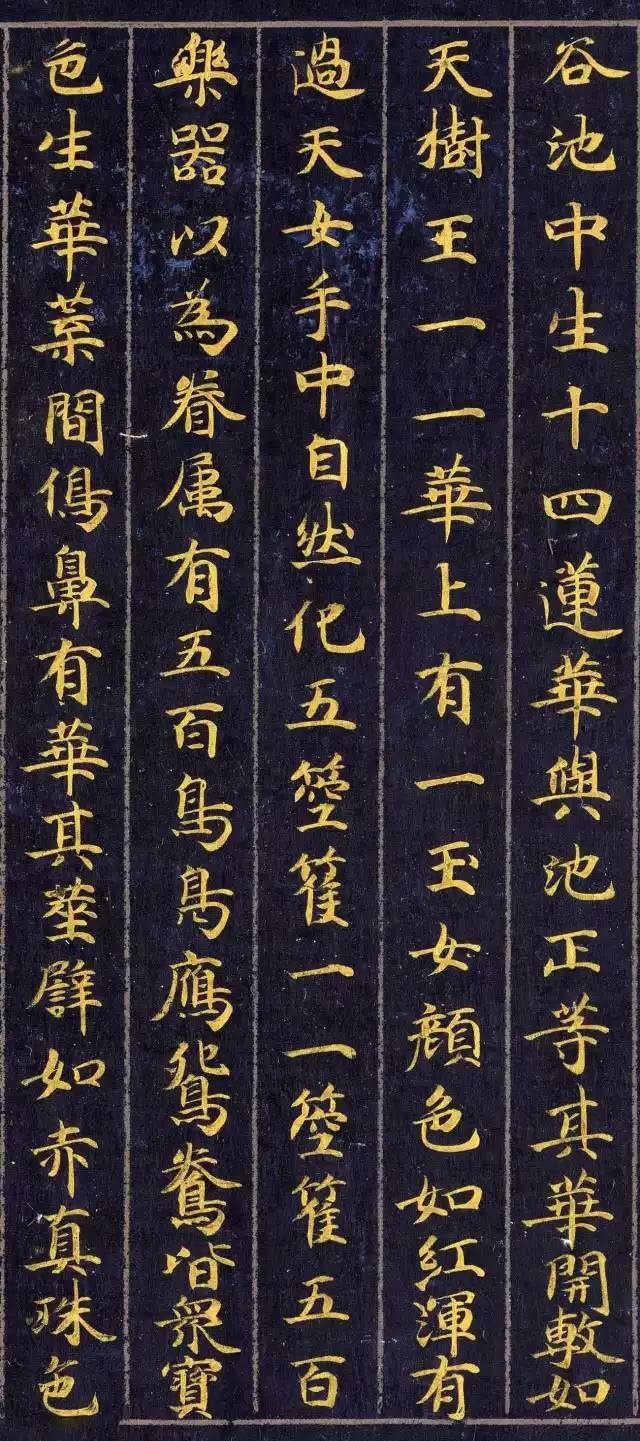 谷池中生十四蓮華與池正等其華開敷如
天樹王一一華上有一玉女顏色如紅渾有
過天女手中自然化五箜篌一一箜篌五百
樂器以為眷属有五百鳥鳧鴈鴛鴦皆眾寶
色生華葉間傷鼻有華其莖譬如赤真珠色